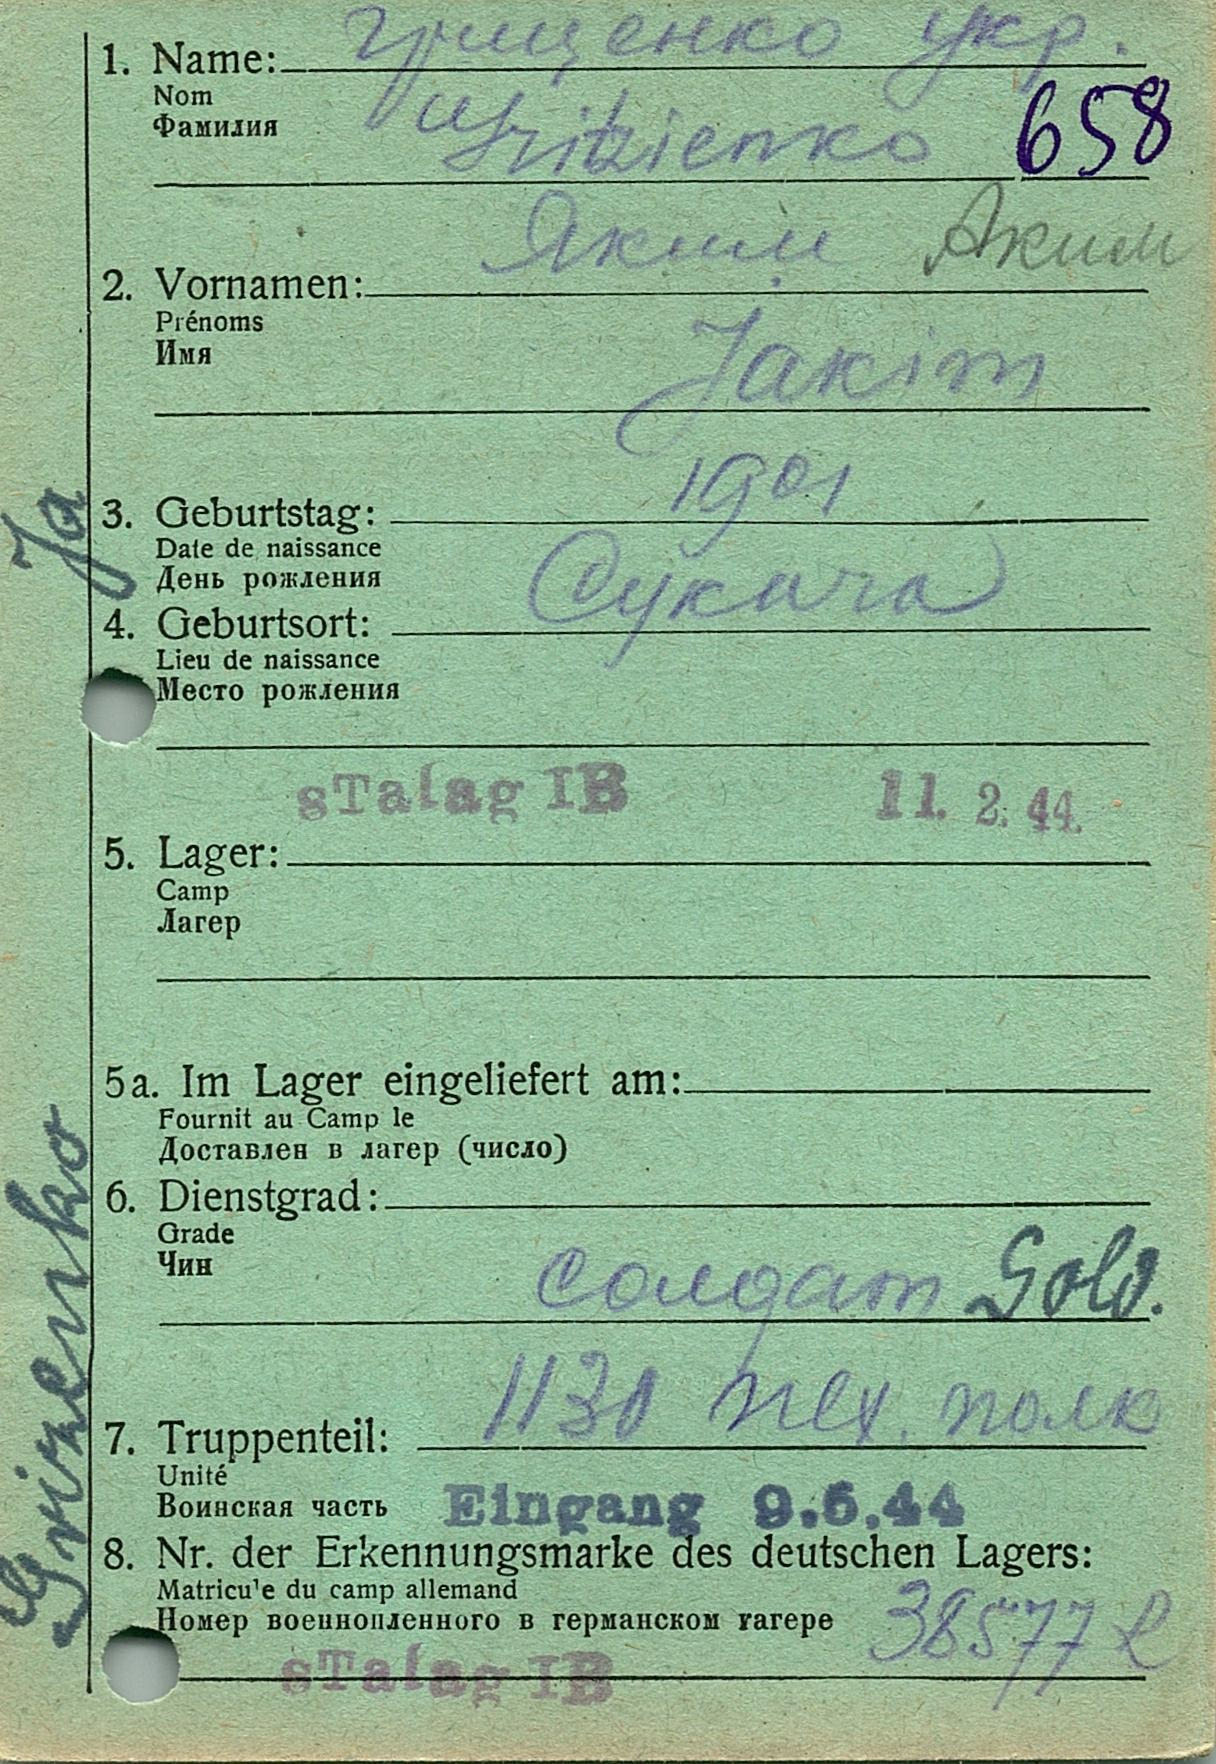 1. Name: Грищенко укр.
Nom
Фамилия
658
2. Vornamen: Яким Аким
Prénoms
Имя
Jakim
3. Geburtstag: 1901
Date de naissance
День рождения
4. Geburtsort: Сукача
Lieu de naissance
Место рождения
sTalag IB 11. 2. 44.
5. Lager:
Camp
Лагер
5a. Im Lager eingeliefert am:
Fournit au Camp le
Доставлен в лагер (число)
6. Dienstgrad:
Grade
Чин
солдат Sold.
7. Truppenteil: 1130 пех. полк
Unité
Воинская часть Eingang 9.6.44
8. Nr. der Erkennungsmarke des deutschen Lagers:
Matricu'e du camp allemand
Номер военнопленного в германском гагере 38577
sTalag IB
Ja
Grizenko